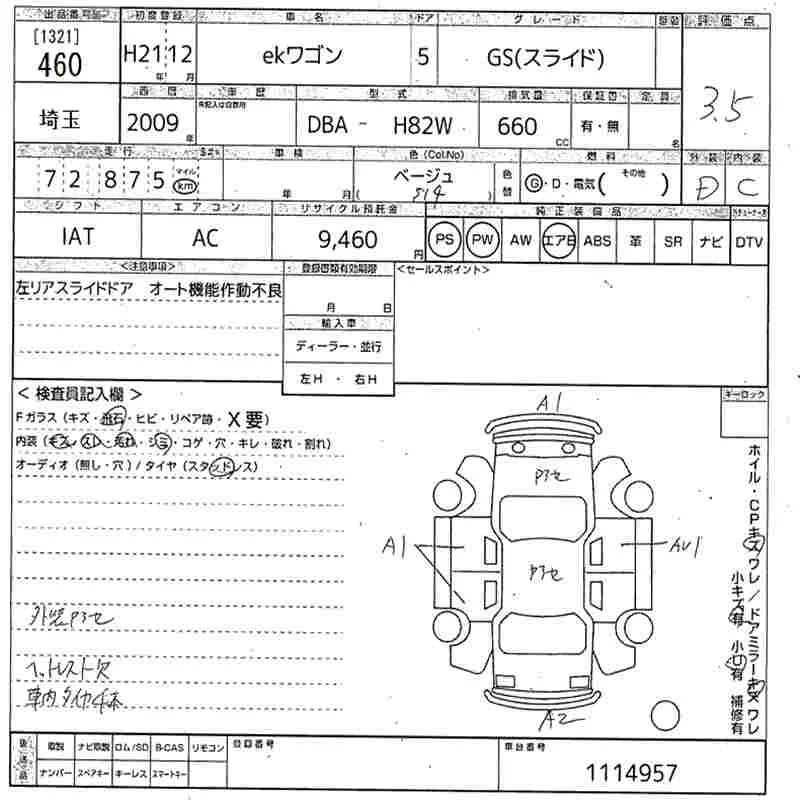 出品番号 初度登録 車名 ドア グレード 評価点
[1321]
460 H21 12 ekワゴン 5 GS(スライド) 3.5
年 月
埼玉 西暦 車歴 型式 排気量 保証書 定員
2009年 DBA - H82W 660cc 有・無 名
走行 車検 色(Col.No) 燃料 外装 内装
72875 マイル km 年 月 ベージュ 色替 G・D・電気( その他 ) D C
514
シフト エアコン リサイクル預託金 純正装備品
IAT AC 9,460円 PS PW AW エアB ABS 革 SR ナビ DTV
<注意事項> 登録書類有効期限 <セールスポイント>
左リアスライドドア オート機能作動不良
月 日
輸入車
ディーラー・並行
左H ・ 右H
< 検査員記入欄 > キーロック
Fガラス (キズ・飛石・ヒビ・リペア跡・X要)
内装 (キズ・スレ・汚れ・シミ・コゲ・穴・キレ・破れ・割れ)
オーディオ (無し・穴) / タイヤ (スタッドレス)
A1
アセ
A1 AU1
アセ
A2
外装アセ
ヘットレスト欠
車内タイヤ4本
ホイル・CPキズワレ/ドアミラーキズワレ
小キズ有 小凹有 補修有
後送品 取説 ナビ取説 ロム/SD B-CAS リモコン 登録番号 車台番号
ナンバー スペアキー キーレス スマートキー
1114957